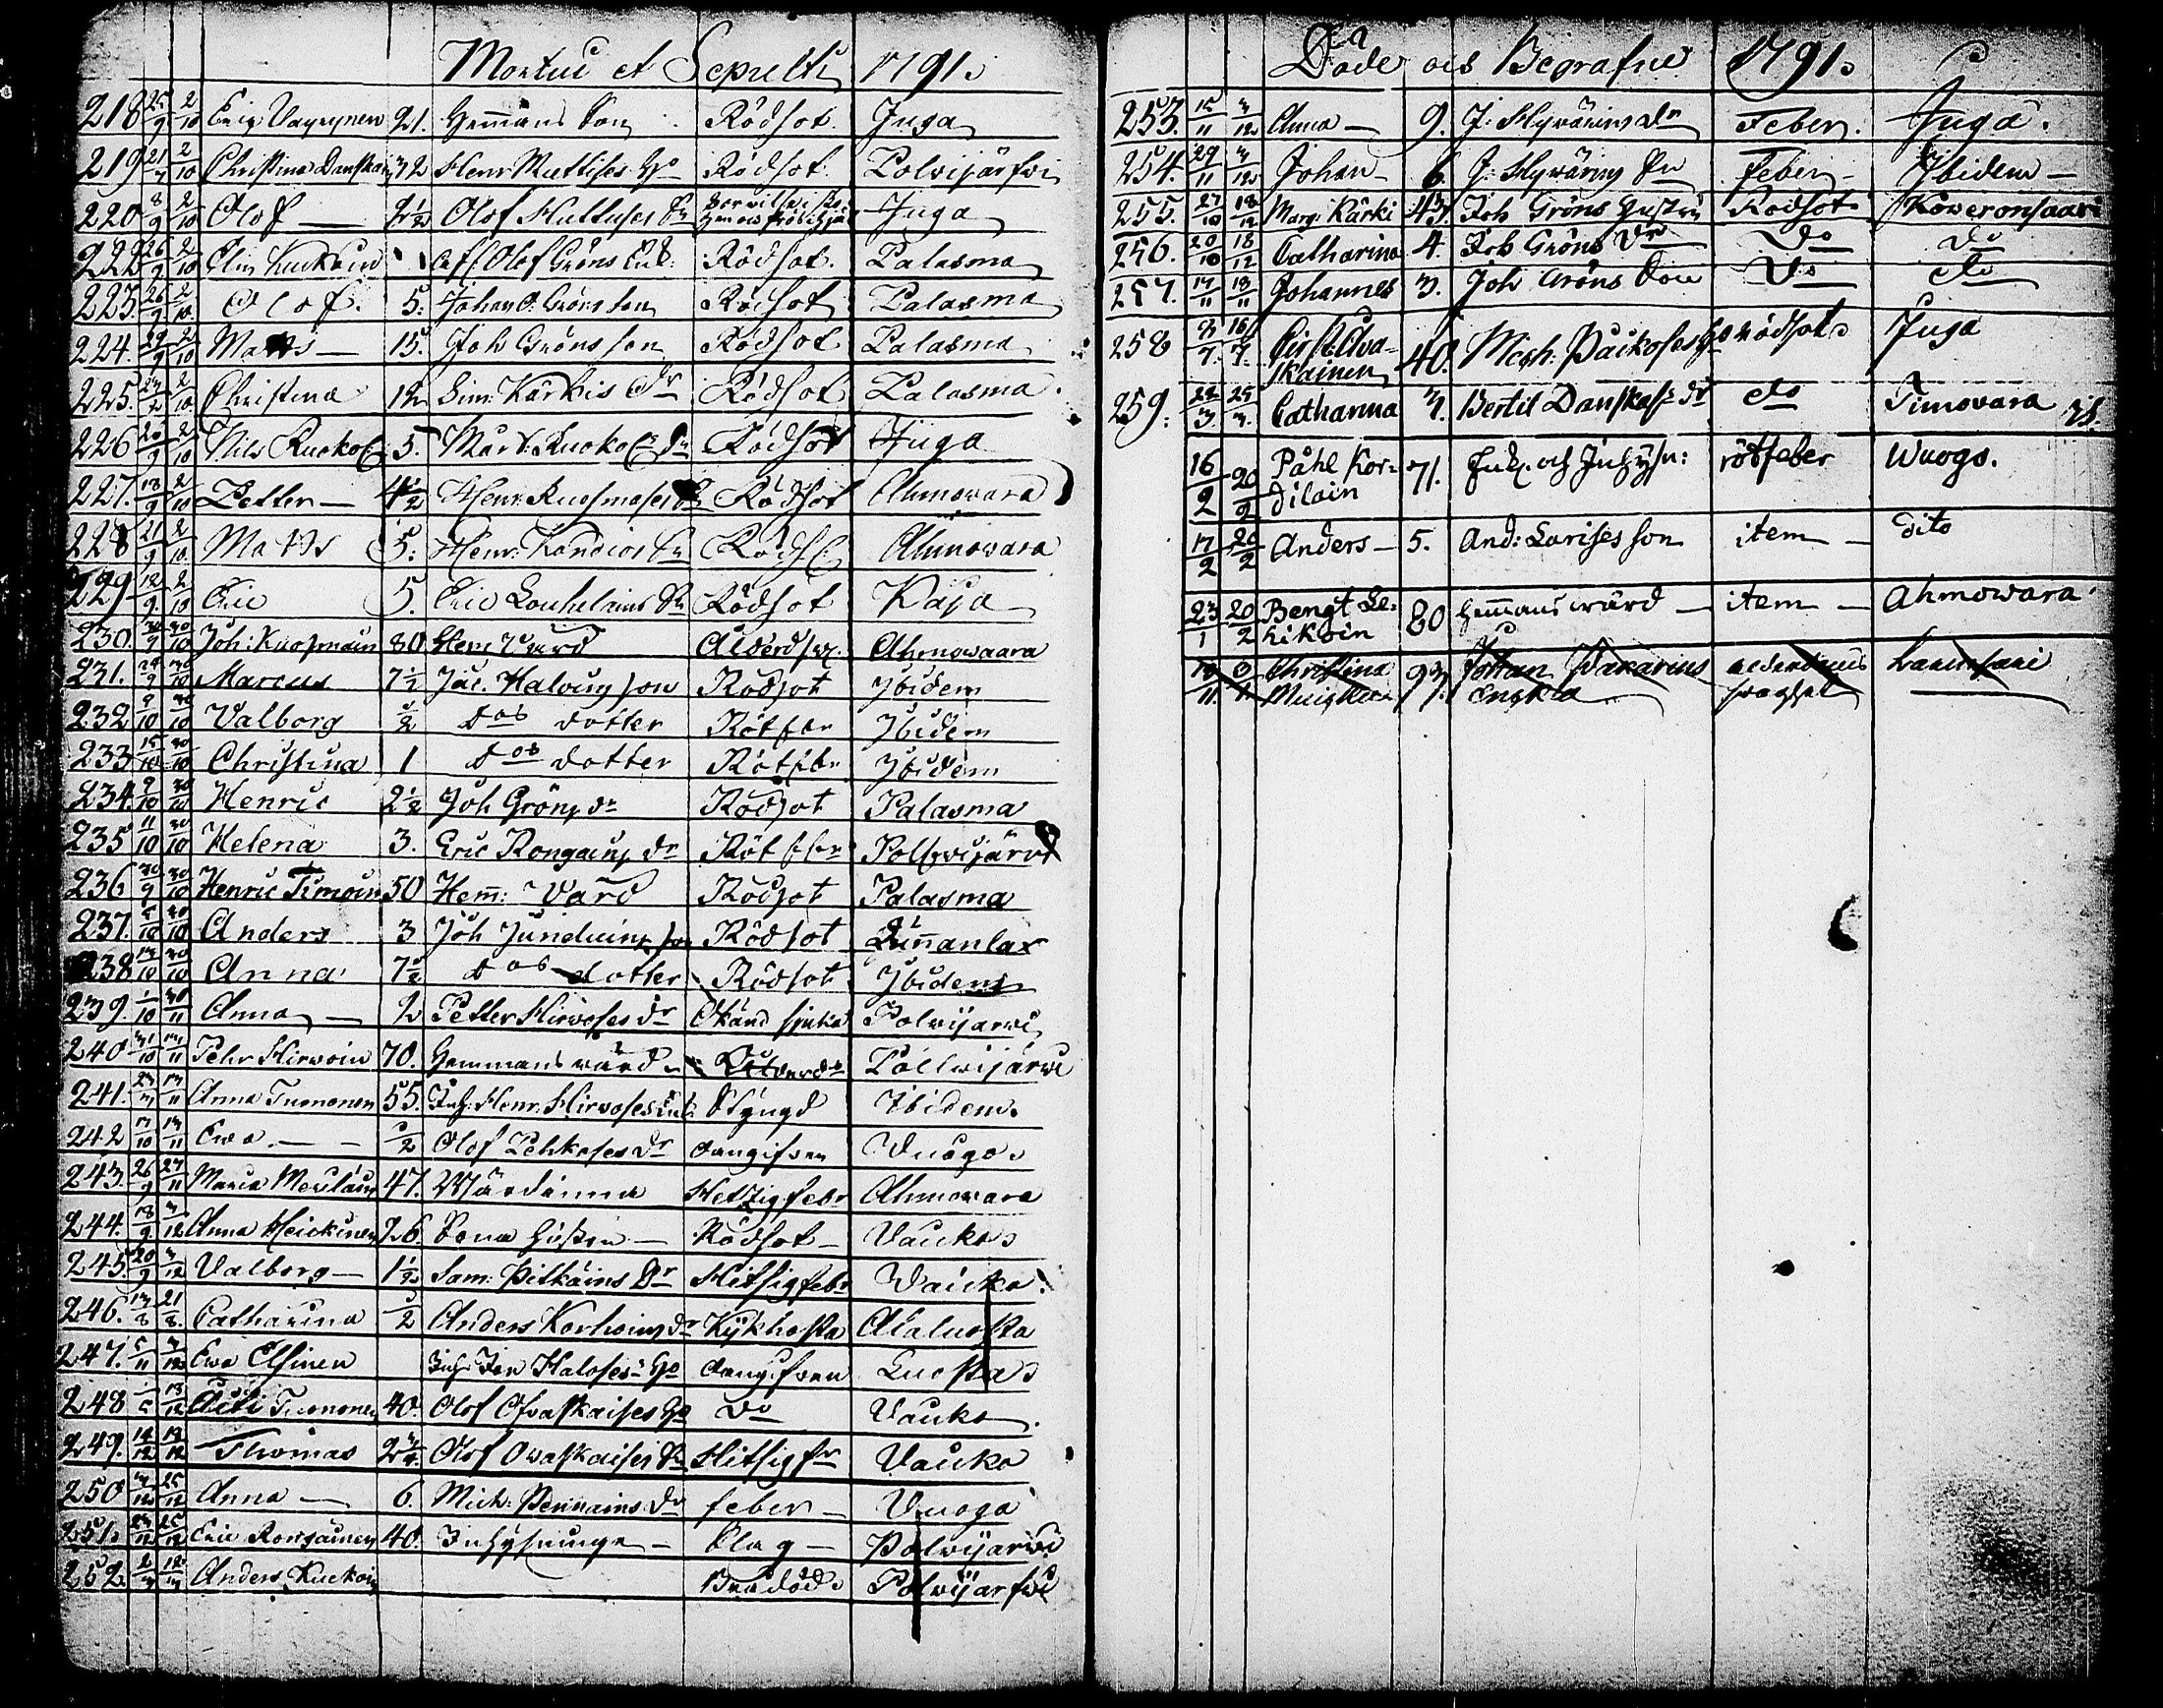 Mortui et Sepulti 1791.
218 25/9 2/10 Eric Väyrynen 21. Hemans Son Rödsot Juga
219 21/9 2/10 Christina Danska 32 Henr Mattises Ho Rödsot Polvijärfvi
220 8/9 2/10 Olof — 2½ Olof Huttuses Sn Juga
222 26/9 2/10 Elin Kuckoin Olof Gröns Enk: Rödsot. Palasma
223. 26/9 2/10 Olof. 5: Johan O: Gröns Son Rödsot Palasma
224. 29/9 2/10 Matts — 15. Joh Gröns son Rödsot Palasma
225. 2/10 Christina 12 Sim: Kärkis Dr Rödsot Palasma
226 2/10 Nils Ruoko 5. Mårt: Ruoko Sn Rödsot Juga
227. 18/9 2/10 Petter — 4½ Henr: Ruosmoses Rödsot Ahmovara
228 21/9 2/10 Matts 5: Henr: Kondios Sn Röds: Ahmowara
229 12/9 2/10 Eric 5. Eric Louhelains Sn Rödsot Kaja
230. 30/10 Joh: Kuosmain 80. Hem Värd Ålderdsw. Ahmowaara
231. 29/9 30/10 Marcus 7½ Jac. Haloing son Rödsot Ibidem
232 9/10 30/10 Valborg ½ Dos dotter Rötfbr Ibidem
233 15/10 30/10 Christina 1 Dos dotter Rötfbr Ibidem
234. 9/10 30/10 Henric 2½ Joh Gröns dr Rödsot Palasma
235 11/10 30/10 Helena 3. Eric Rongains dr Rötfebr Pollwijärvi
236 30/9 30/10 Henric Timoin 50 Hem: Värd Rödsot Palasma
237. 5/10 30/10 Anders 3 Joh Junduins son Rödsot Linnanlax
238 13/10 30/10 Anna 7½ Dos dotter Rödsot Ibidem
239. 1/10 30/11 Anna — 2 Petter Hirvoses dr Okänd sjuka Polwijarwi
240 31/10 13/11 Pehr Hirwoin 70. Hemmans värd Polwijärwi
241. 13/11 Anna Tuononen 55. Inh: Henr. Hirvoses Enk Styngd Ibidem.
242 17/10 13/11 Ewa — ½ Olof Pehkoses dr Vuogo
243. 26/9 27/11 Maria Meriläin 47. Värdinna Hetzigfebr Ahmovara
244. 18/9 3/12 Anna Heickinen 26. Sona Hustru — Rödsot — Vauko
245. 20/9 3/12 Valborg — 1½ Sam: Pitkäins Dr Hitsigfebr Vauko
246. 13/8 21/8 Catharina ½ Anders Korhoins dr Kykhosta Alaluosta
247. 5/11 3/12 Ewa Elsinen Inh: Haloses Ho Luosta
248 Tuononen 40. Olof Ofvaskaises Ho Do Vauko
249. 12/12 13/12 Thomas 2¾ Olof Ovaskaises Sn Hitsigfr Vauko
250 3/12 25/12 Anna — 6. Mich: Pennains Dr feber — Vuoga
251. 23/12 25/12 Eric Rongainen 40. Inhysninge — Slag — Polwijarwi
252. Anders Kuckoin Brådöd Polwijarfwi
Döde och Begrafne 1791.
253. 15/11 3/12 Anna — 9. J: Hyvärins dr Feber. Juga.
254. 29/11 3/12 Johan 6. J: Hyvärins Sn feber — Ibidem —
255. 27/10 18/12 Marg: Kärki 43. Joh Gröns Hustru Rödsot Koweronsaari
256. 20/10 18/12 Catharina 4. Joh Gröns Dr Do Do
257. 17/11 18/11 Johannes 3. Joh Gröns Son Do do
258 3/7. 16/7. Christ: Ova-
skainen 40. Mich: Paikoses Ho rödsot Juga
259. 22/3 25/3. Catharina 3. Bertil Danskas dr do Timovara
16/2 20/2 Påhl Kor-
dilain 71. Enk: och Inhysn: rötfeber Wuogo.
17/2 20/2 Anders — 5. And: Larises son item — dito
23/1 20/2 Bengt Le-
hikoin 80 Hemmans wärd — item — Ahmowara
Christina
Muikku 93. Johan Wacarius
Enkia ålderdoms
swaghet Lammsari